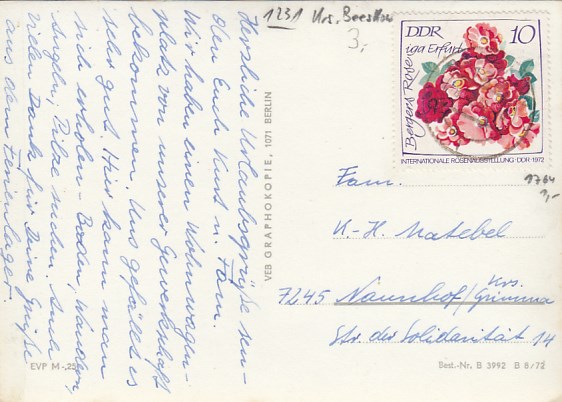 1231 Krs. Beeskow
3,-
DDR 10
iga Erfurt
Bergers Rose
INTERNATIONALE ROSENAUSSTELLUNG · DDR · 1972
1764
1,-
Herzliche Urlaubsgrüße sen-
den Euch Kurt u. Fam.
Wir haben einen Wohnwagen-
platz von unserer Gewerkschaft
bekommen. Uns gefällt es
sehr gut. Hier kann man
sich erholen - Baden, Wandern,
Angeln, Pilze suchen. Auch
vielen Dank für Deine Grüße
aus dem Ferienlager.
VEB GRAPHOKOPIE, 1071 BERLIN
Fam.
K.-H. Matebel
7245 Naunhof/Krs. Grimma
Str. der Solidarität 14
EVP M -,25
Best.-Nr. B 3992 B 8/72